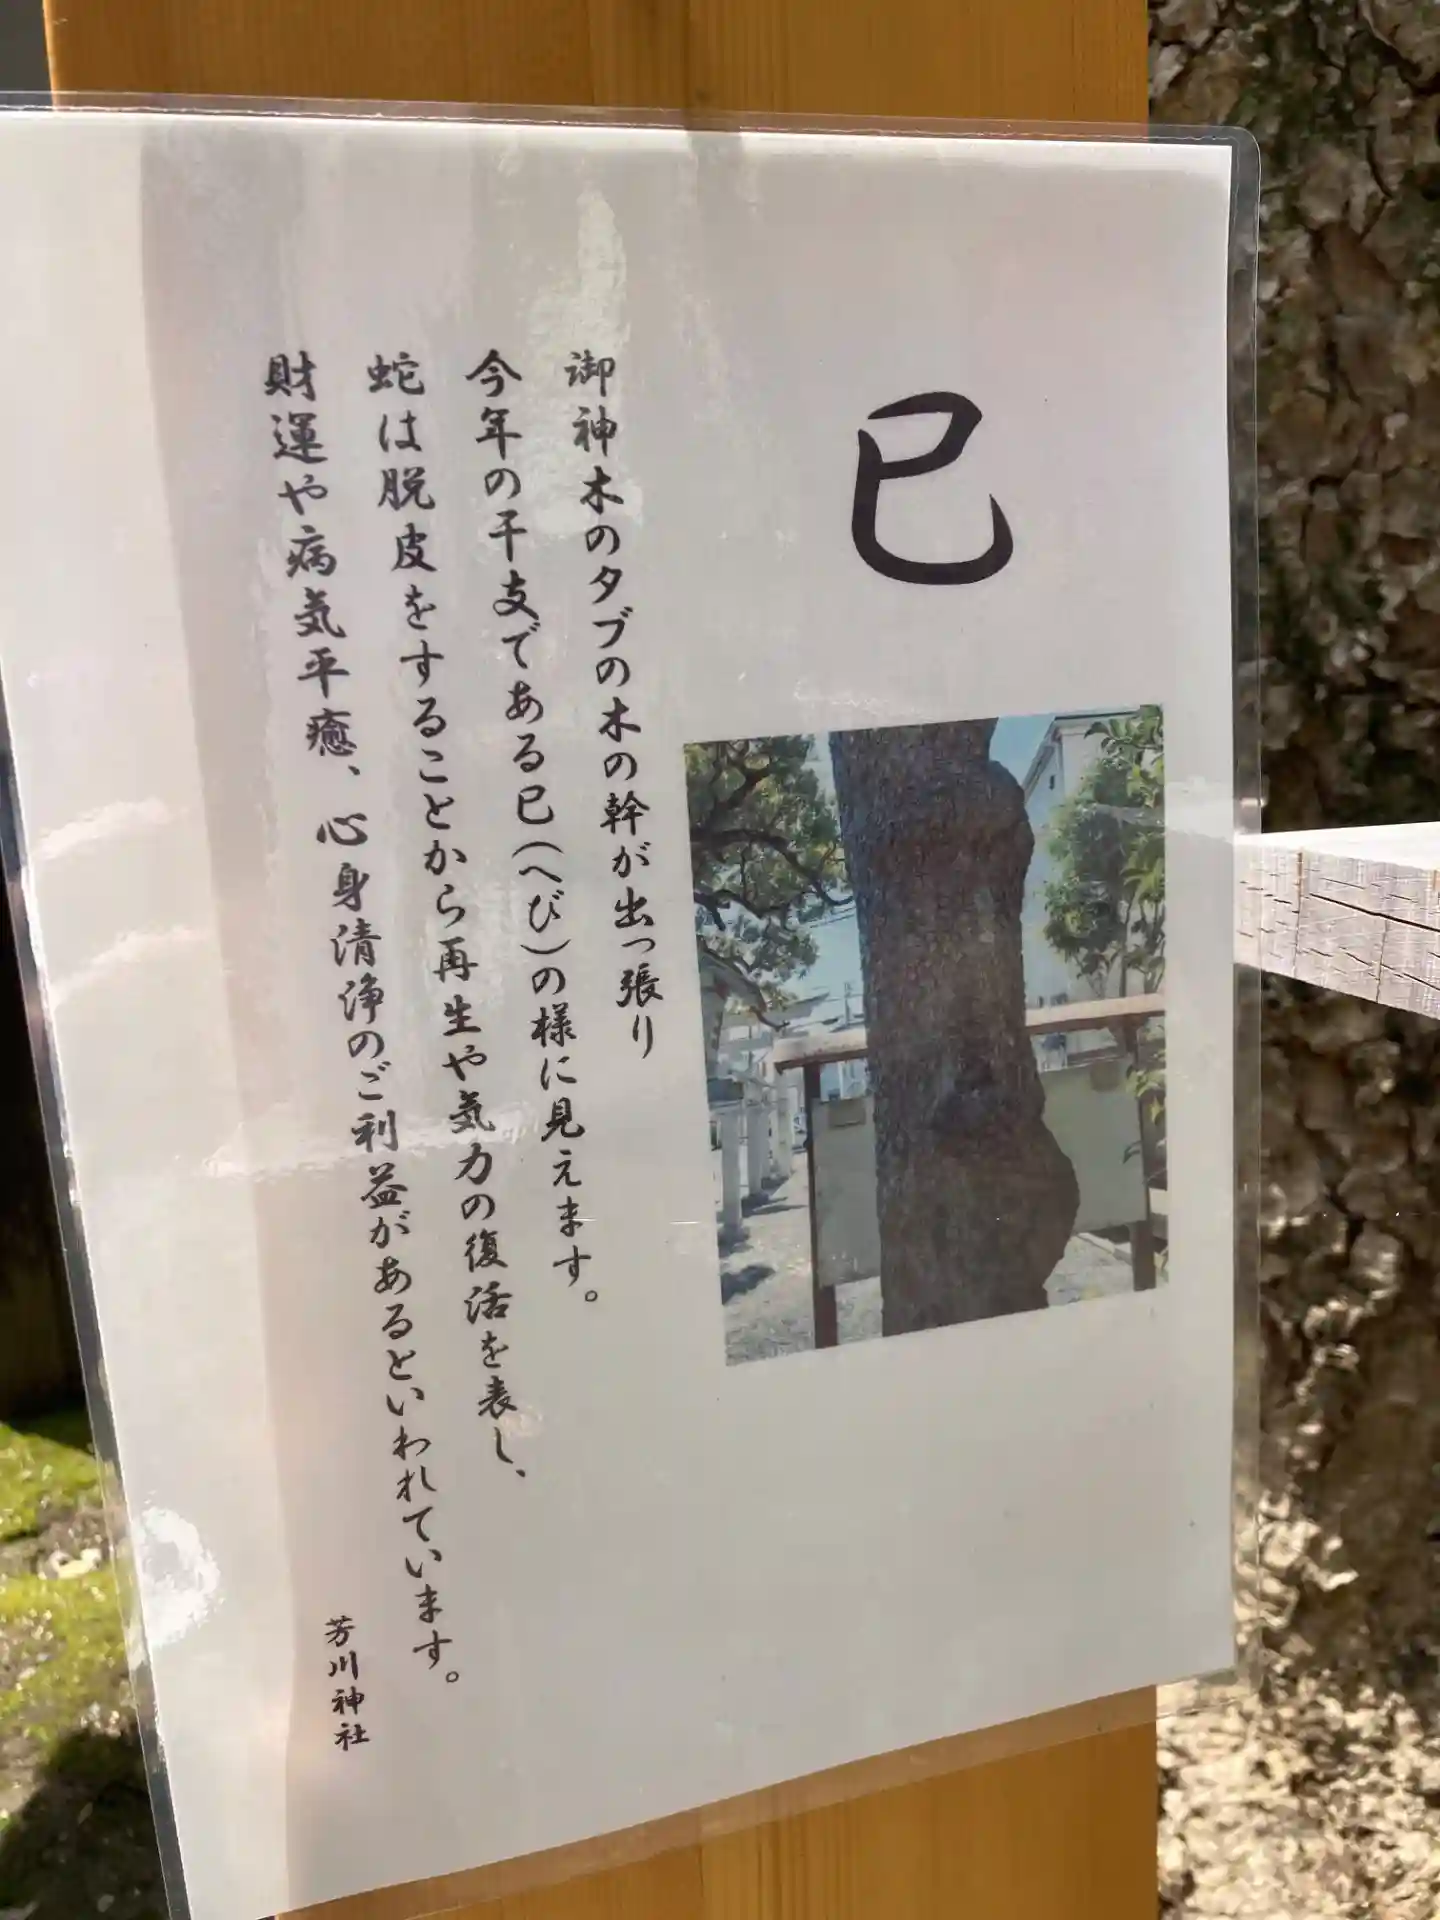 巳
御神木のタブの木の幹が出っ張り
今年の干支である巳(へび)の様に見えます。
蛇は脱皮をすることから再生や気力の復活を表し、
財運や病気平癒、心身清浄のご利益があるといわれています。
芳川神社